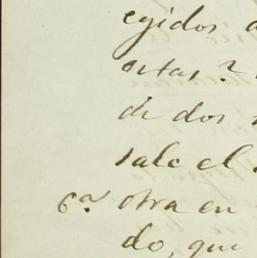 egidos
estas?
de dos
sale el
6ª otra en
do, que